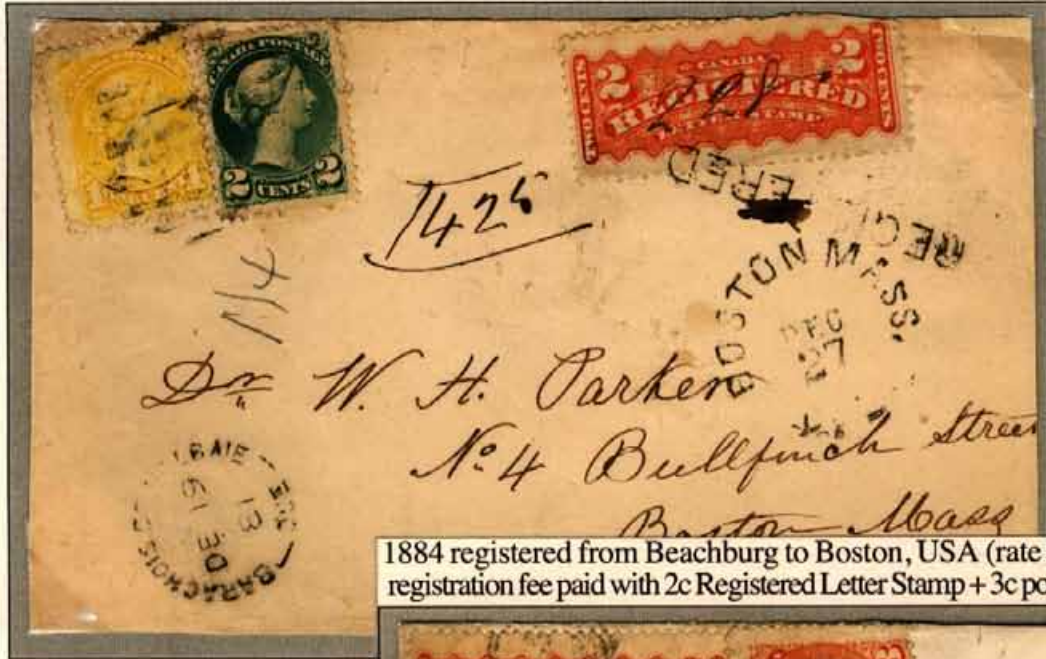 CANADA POSTAGE
2 CENTS 2
2 CANADA 2
TWO CENTS REGISTERED TWO CENTS
LETTER STAMP
298
REGISTERED
1425
1/4
BOSTON MASS.
DEC
27
Dr W. H. Parker
No. 4 Bullfinch Street
Boston Mass
BARACHOIS
DE 19
81
1884 registered from Beachburg to Boston, USA (rate
registration fee paid with 2c Registered Letter Stamp + 3c po